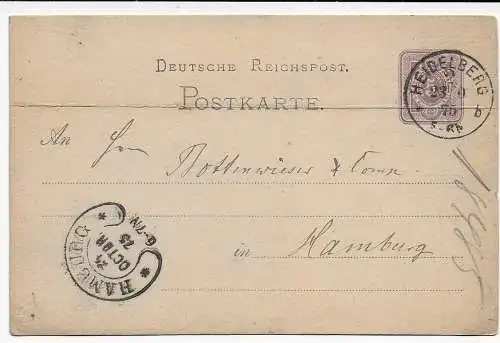 DEUTSCHE REICHSPOST.
POSTKARTE.
HEIDELBERG
23 10
75
5-6N b
An Hrn Bottenwieser & Comp
in Hamburg
HAMBURG
24
OCTBR
75
6-7N.